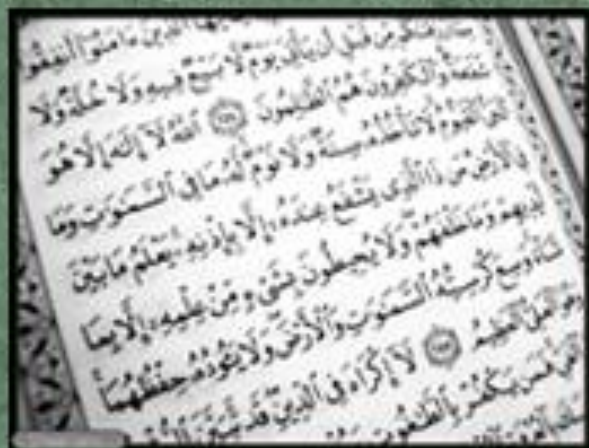 يَٰٓأَيُّهَا ٱلَّذِينَ ءَامَنُوٓا۟ أَنفِقُوا۟
رَزَقْنَٰكُم مِّن قَبْلِ أَن يَأْتِىَ يَوْمٌ لَّا بَيْعٌ فِيهِ وَلَا خُلَّةٌ وَلَا
شَفَٰعَةٌ وَٱلْكَٰفِرُونَ هُمُ ٱلظَّٰلِمُونَ ٱللَّهُ لَآ إِلَٰهَ إِلَّا هُوَ
ٱلْحَىُّ ٱلْقَيُّومُ لَا تَأْخُذُهُۥ سِنَةٌ وَلَا نَوْمٌ لَّهُۥ مَا فِى ٱلسَّمَٰوَٰتِ وَمَا
فِى ٱلْأَرْضِ مَن ذَا ٱلَّذِى يَشْفَعُ عِندَهُۥٓ إِلَّا بِإِذْنِهِۦ يَعْلَمُ مَا بَيْنَ
أَيْدِيهِمْ وَمَا خَلْفَهُمْ وَلَا يُحِيطُونَ بِشَىْءٍ مِّنْ عِلْمِهِۦٓ إِلَّا بِمَا
شَآءَ وَسِعَ كُرْسِيُّهُ ٱلسَّمَٰوَٰتِ وَٱلْأَرْضَ وَلَا يَـُٔودُهُۥ حِفْظُهُمَا
وَهُوَ ٱلْعَلِىُّ ٱلْعَظِيمُ لَآ إِكْرَاهَ فِى ٱلدِّينِ قَد تَّبَيَّنَ
فَمَن يَكْفُرْ بِٱلطَّٰغُوتِ